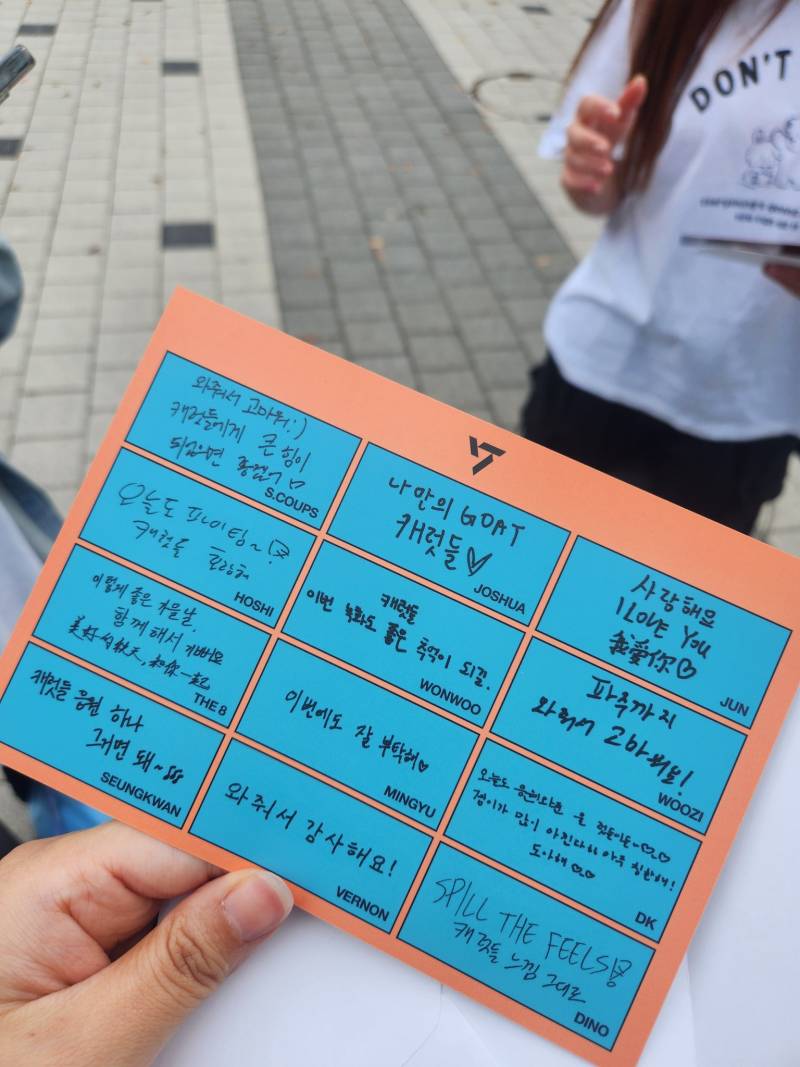 DON'T
와줘서 고마워:)
캐럿들에게 큰 힘이
되었으면 좋겠어 ♡
S.COUPS
나만의 GOAT
캐럿들♡
JOSHUA
사랑해요
I LOVE YOU
我愛你♡
JUN
오늘도 파이팅~!
캐럿들 호랑해
HOSHI
캐럿들
이번 녹화도 좋은 추억이 되길.
WONWOO
파주까지
와줘서 고마워요!
WOOZI
이렇게 좋은 가을날
함께 해서 기뻐요
美好的秋天, 和你一起
THE 8
이번에도 잘 부탁해♡
MINGYU
오늘도
많이 아낀다 아주 칭찬해!
도아해♡♡
DK
캐럿들 응원 하나
그거면 돼~
SEUNGKWAN
와줘서 감사해요!
VERNON
SPILL THE FEELS!
캐럿들 느낌 그대로
DINO